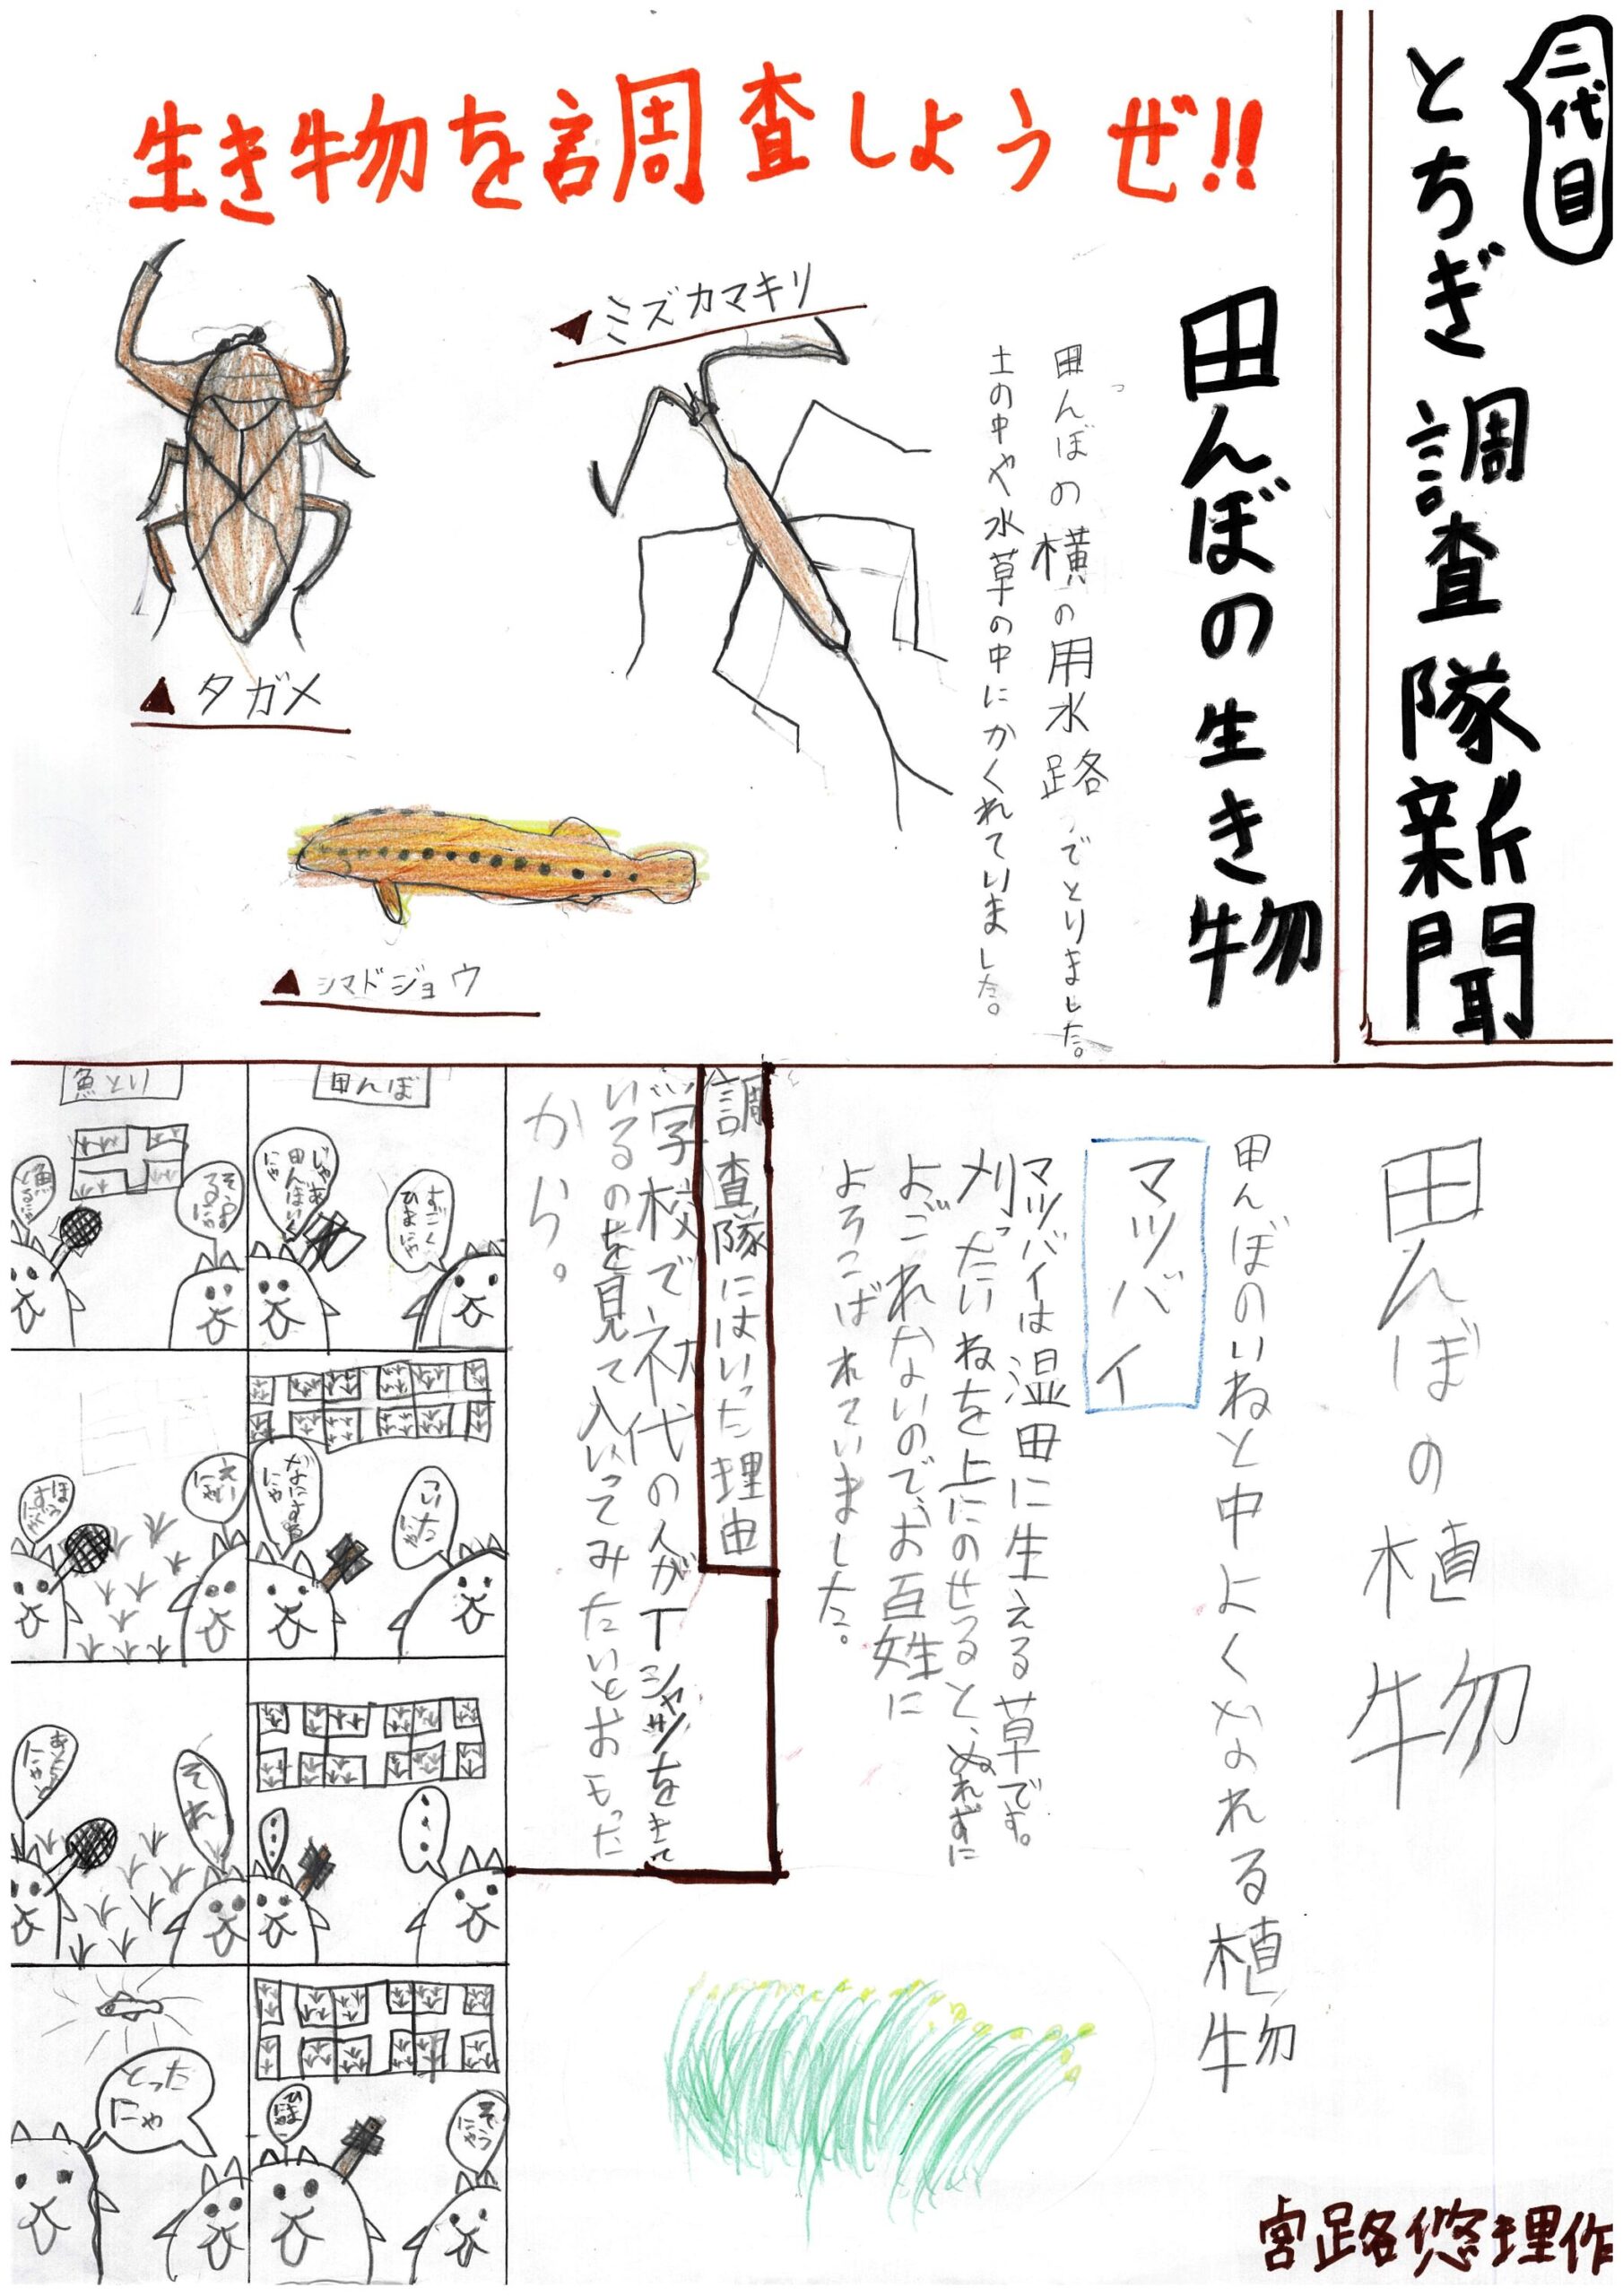 二代目
とちぎ調査隊新聞
生き物を調査しようぜ!!
田んぼの生き物
田んぼの横の用水路でとりました。
土の中や水草の中にかくれていました。
▲ミズカマキリ
▲タガメ
▲シマドジョウ
田んぼの植物
田んぼのいねと中よくなれる植物
マツバイ
マツバイは湿田に生える草です。
刈ったいねを上にのせると、ぬれずに
よごれないので、お百姓に
よろこばれていました。
調査隊にはいった理由
学校でネ代の人がTシャツをきて
いるのを見て入いってみたいとおもった
から。
田んぼ
すごくひまにゃ
じゃあ田んぼいくにゃ
ついたにゃ
なにするにゃ
・・・
・・・
そうにゃ
ひまにゃ
魚とり
そうするにゃ
魚とるにゃ
えいにゃ
それ
とったにゃ
宮路悠理作